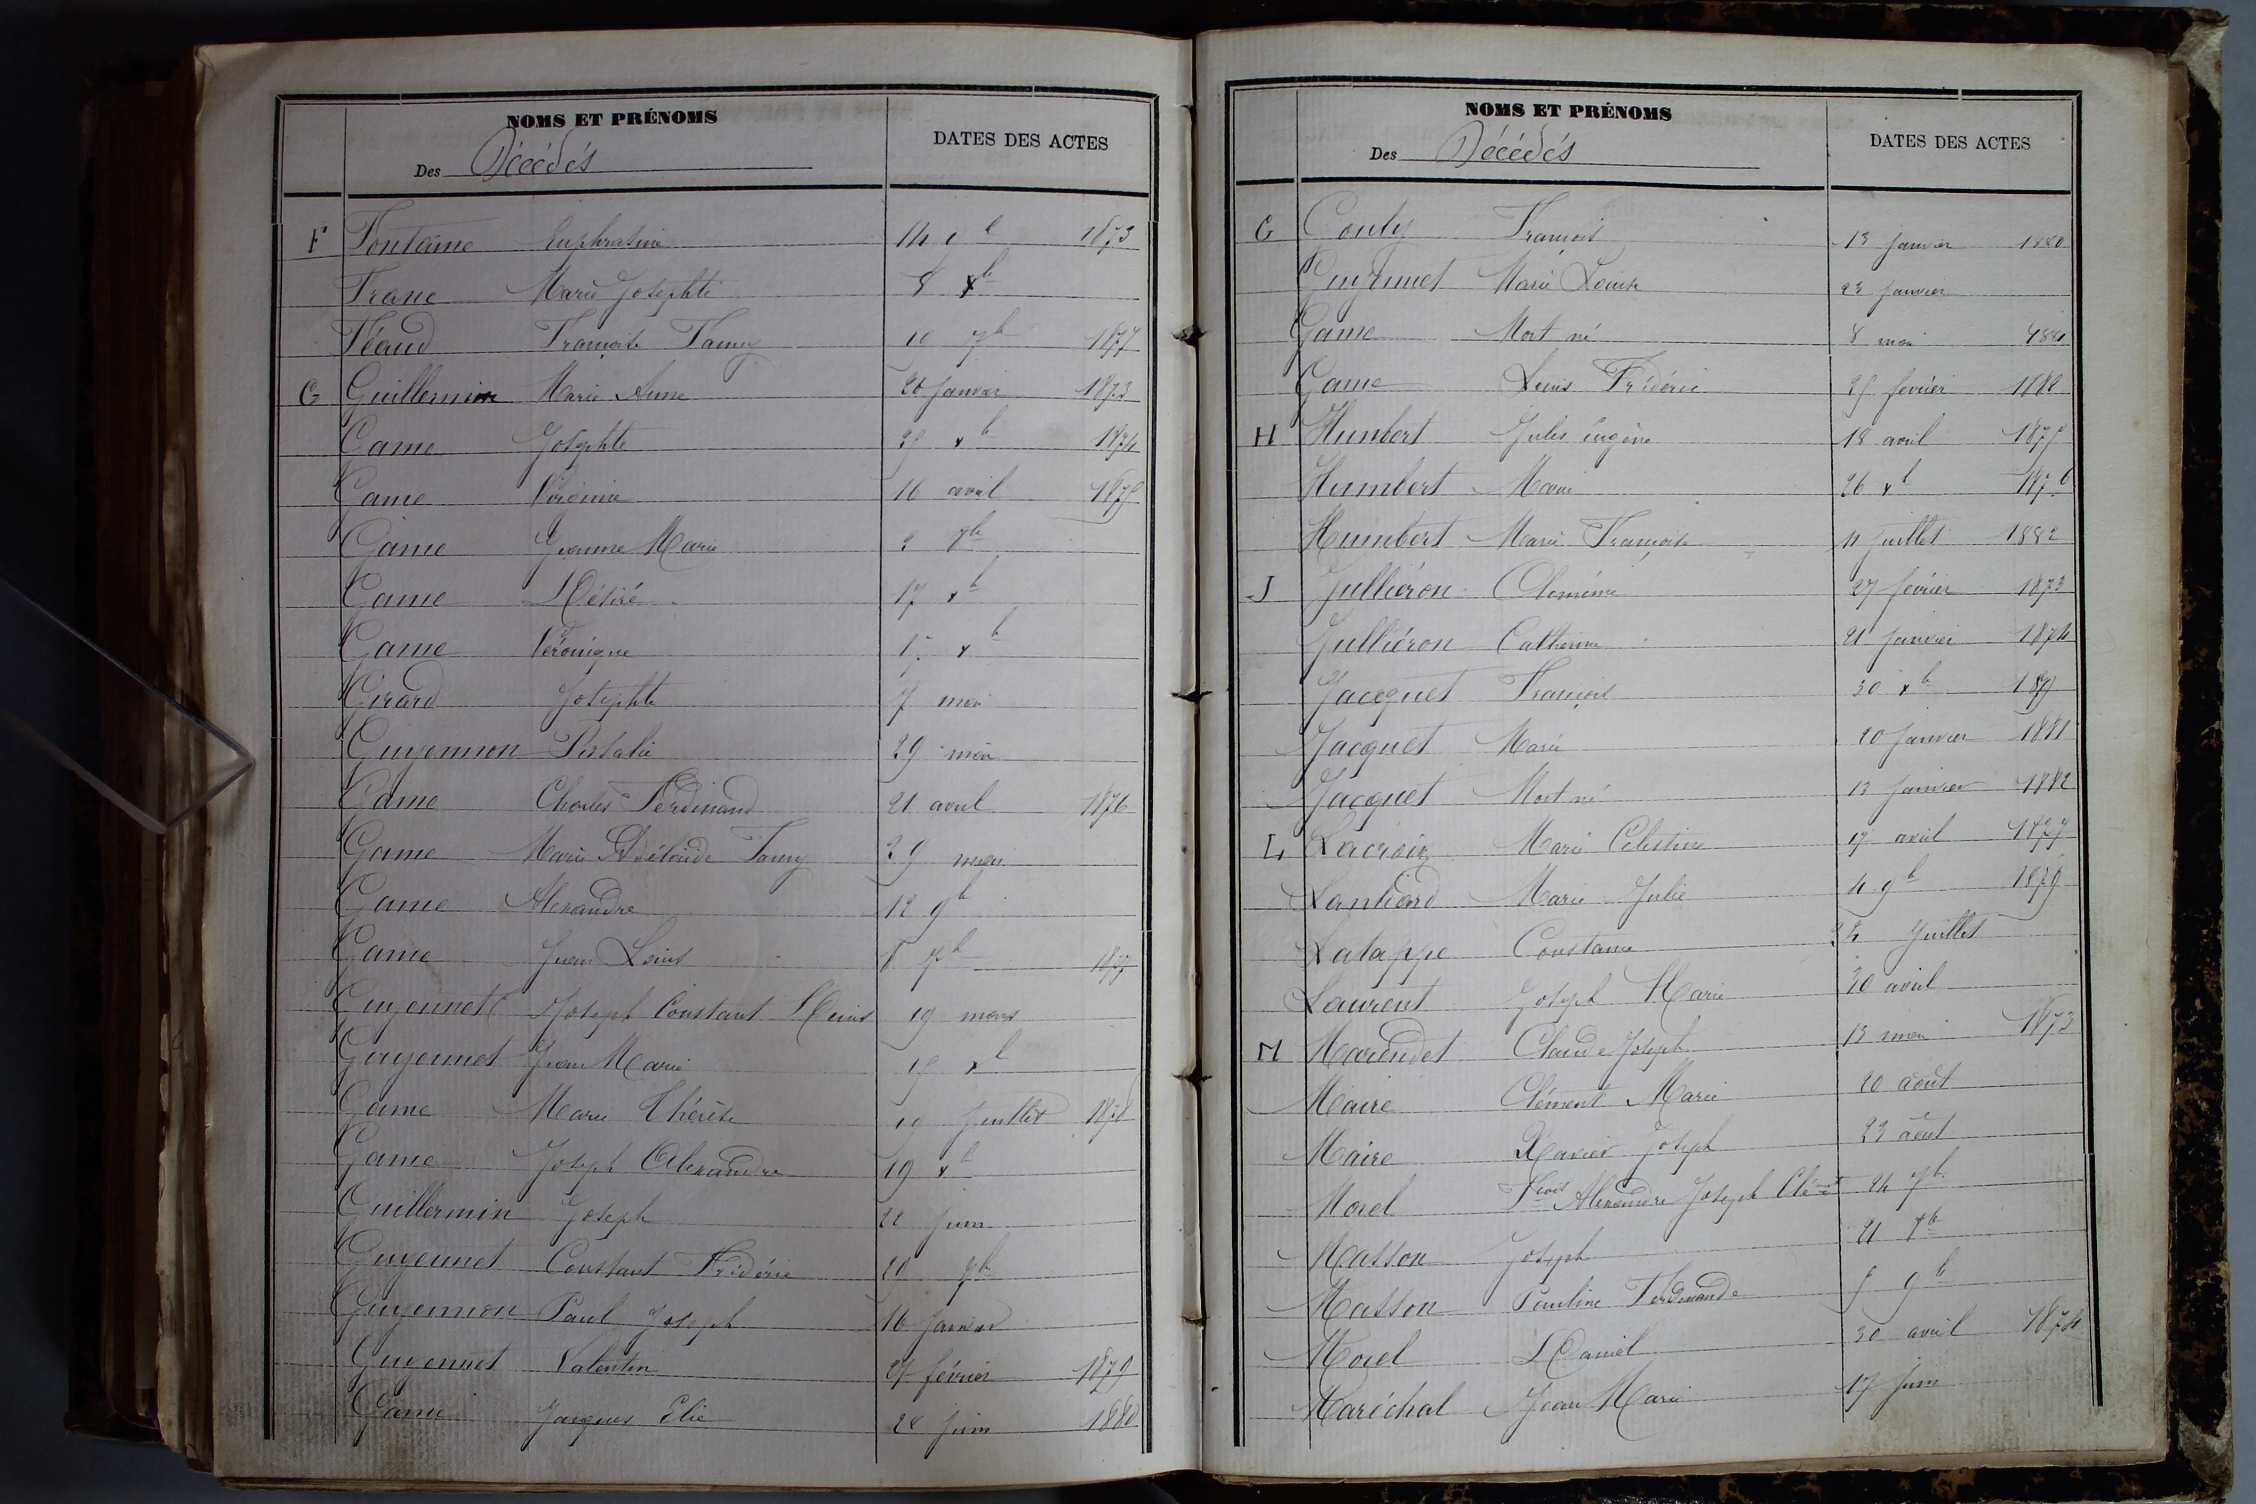 NOMS ET PRÉNOMS
Des Décédés
DATES DES ACTES
F Fontaine Euphrasine 14 1873
Franc Marie Josephte 8 xb
Féaud Françoise Fanny 10 7b 1877
G Guillermin Marie Anne 20 janvier 1873
Game Josephte 29 xb 1874
Game Virginie 16 avril 1875
Game Jeanne Marie 2 7b
Game Désiré 17 xb
Game Véronique xb
Girard Josephte 7 mai
Guyennon 29 mai
Game Charles Ferdinand 21 avril 1876
Game Marie Adélaïde Fanny 29 mai
Game Alexandre 12 9b
Game Jean Louis 8 7b 1877
Guyennet Joseph Constant 19 mars
Guyennet Jean Marie 19 xb
Game Marie Thérèse 19 juillet 1878
Game Joseph Alexandre 19 xb
Guillermin Joseph 22 juin
Guyennet Constant Frédéric 20 9b
Guyennon Paul Joseph 16 janvier
Guyennet Valentin 27 février 1879
Game Jacques Elie 28 juin 1880
NOMS ET PRÉNOMS
Des Décédés
DATES DES ACTES
G Gouly François 13 janvier 1880
Guyennet Marie Louise 23 janvier
Game Mort né 8 mai 1881
Game Louis Frédéric 25 février 1882
H Humbert Jules Eugène 18 avril 1875
Humbert Marie 26 xb 1876
Humbert Marie Françoise 11 juillet 1882
J Julliéron 27 février 1873
Julliéron Catherine 21 janvier 1874
Jacquet François 30 xb 1879
Jacquet Marie 20 janvier 1881
Jacquet Mort né 13 janvier 1882
L Lacroix Marie Célestine 17 avril 1877
Lantiard Marie Julie 4 9b 1879
Latappe Constance 24 juillet
Laurent Joseph Marie 30 avril
M Marendet Claude Joseph 13 mai 1873
Maire Clément Marie 20 août
Maire Xavier Joseph 23 août
Morel Alexandre Joseph 24 7b
Masson Joseph 21 xb
Masson Pauline Ferdinande 5 9b
Morel Daniel 30 avril 1874
Maréchal Jean Marie 17 juin